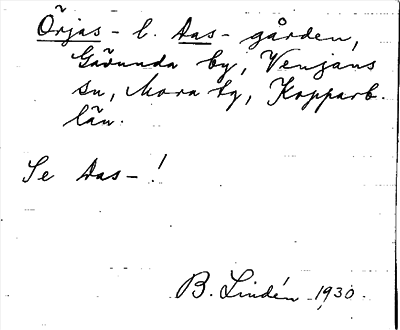 Örjas- l. Aas- gården,
Gävunda by, Venjans
sn, Mora tg, Kopparb.
län.
Se Aas-!
B. Lindén 1930.